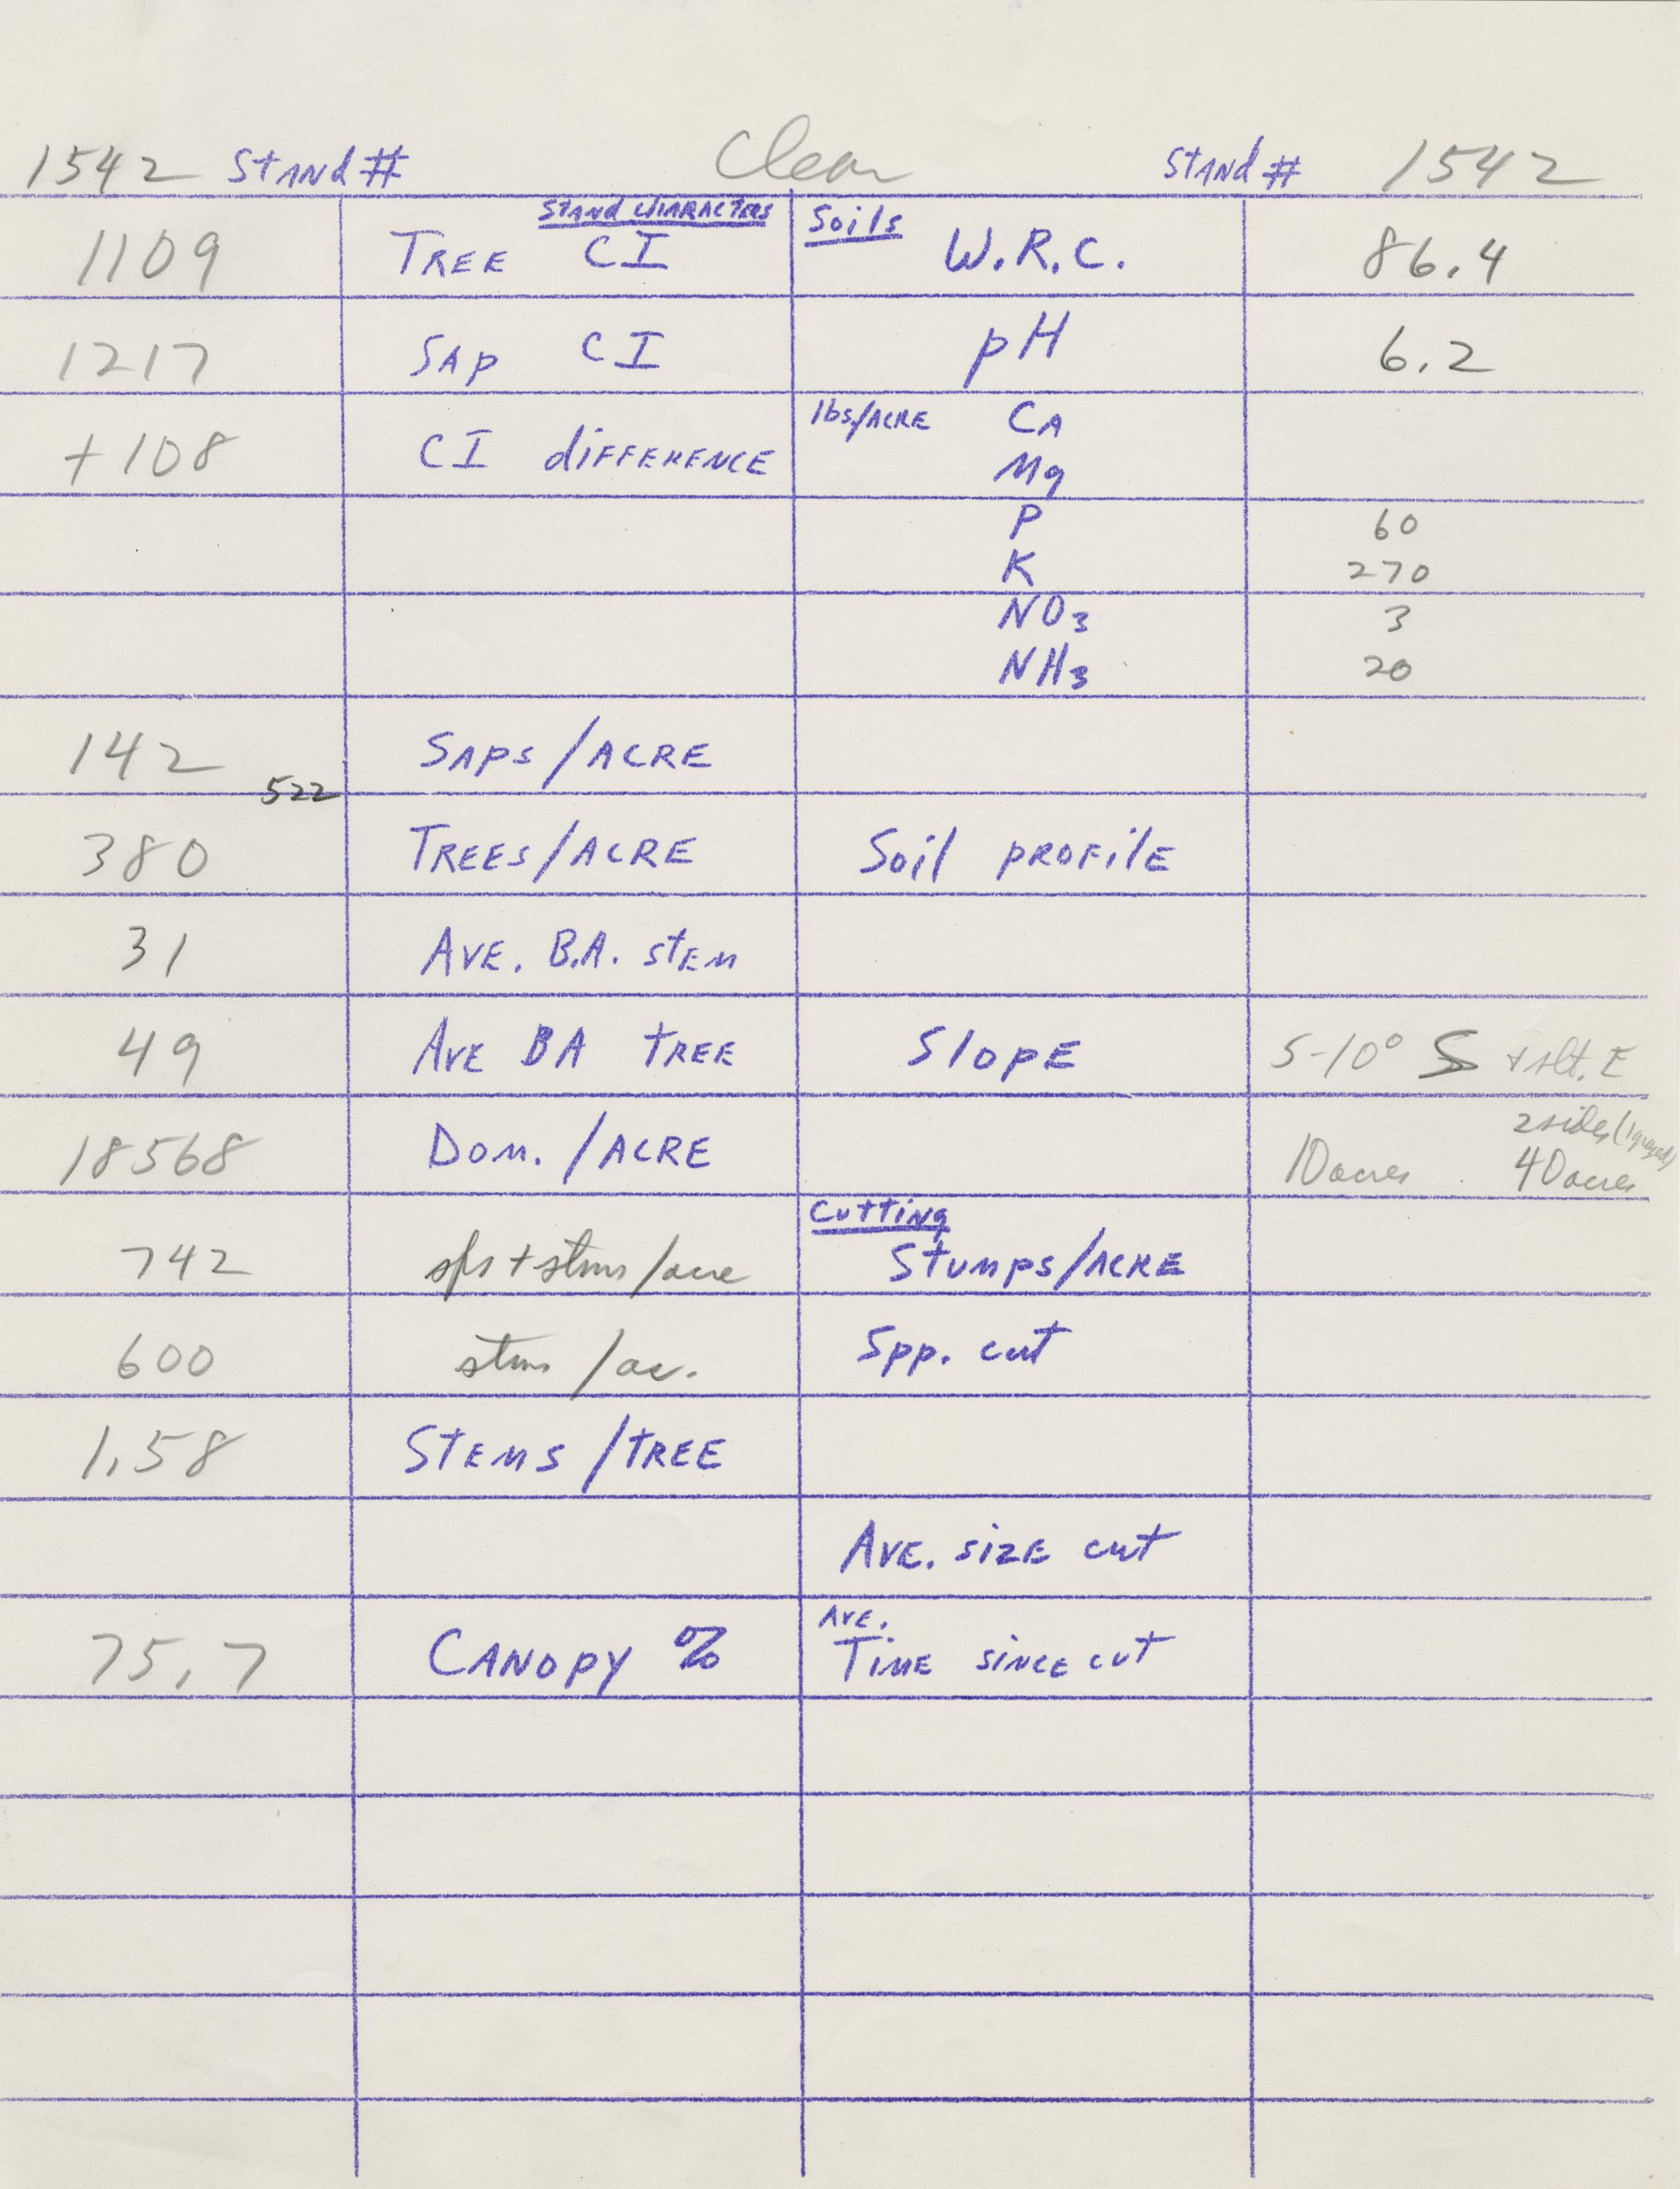 1542 Stand # Clean Stand # 1542
Stand Characters Soils
1109 Tree CI W.R.C. 86.4
1217 Sap CI pH 6.2
+108 CI difference lbs/acre Ca
Mg
P 60
K 270
NO3 3
NH3 20
142 Saps/acre
522
380 Trees/acre Soil profile
31 Ave. B.A. stem
49 Ave BA tree Slope 5-10° S + slt. E
2 sides (1 grazed)
18568 Dom./acre 10 acres 40 acres
Cutting
742 sps + stms/acre Stumps/acre
600 stms/ac. Spp. cut
1.58 Stems/tree
Ave. size cut
Ave.
75.7 Canopy % Time since cut